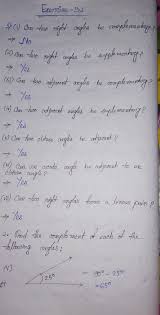 Exercise-
1) (i) Can two right angles be complementary?
→ No
(ii) Can two right angles be supplementary?
→ Yes
(iii) Can two adjacent angles be complementary?
→ Yes
(iv) Can two adjacent angles be supplementary?
→ Yes
(v) Can two obtuse angles be adjacent?
→ Yes
(vi) Can an acute angle be adjacent to an
obtuse angle?
→ Yes
(vii) Can two right angles form a linear pair?
→ Yes
2. Find the complement of each of the
following angles:
(i)
25°
→ 90° - 25°
= 65°